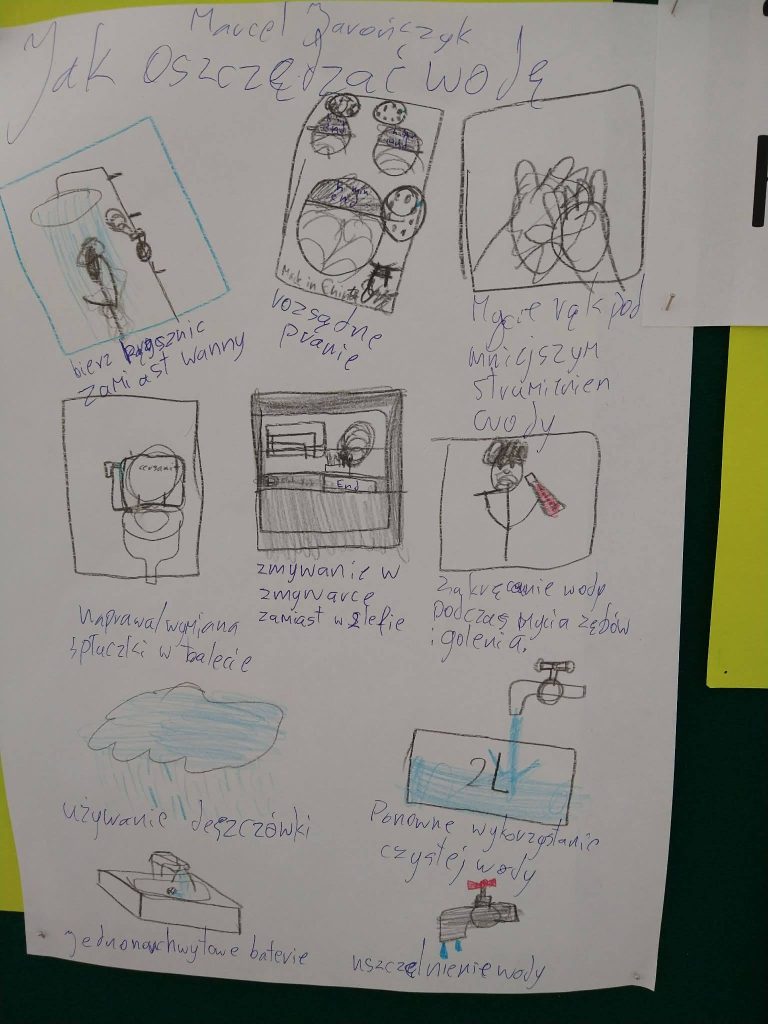 Marcel Jarończyk
Jak oszczędzać wodę
End
5 min
End
Mak in China
bierz prysznic
zamiast wanny
rozsądne
pranie
Mycie rąk pod
mniejszym
strumieniem
wody
cersanit
End
naprawa/wymiana
spłuczki w toalecie
zmywanie w
zmywarce
zamiast w zlefie
Zakręcanie wody
podczas mycia zębów
i golenia.
używanie deszczówki
2L
Ponowne wykorzystanie
czystej wody
jednouchwytowe baterie
uszczelnienie wody